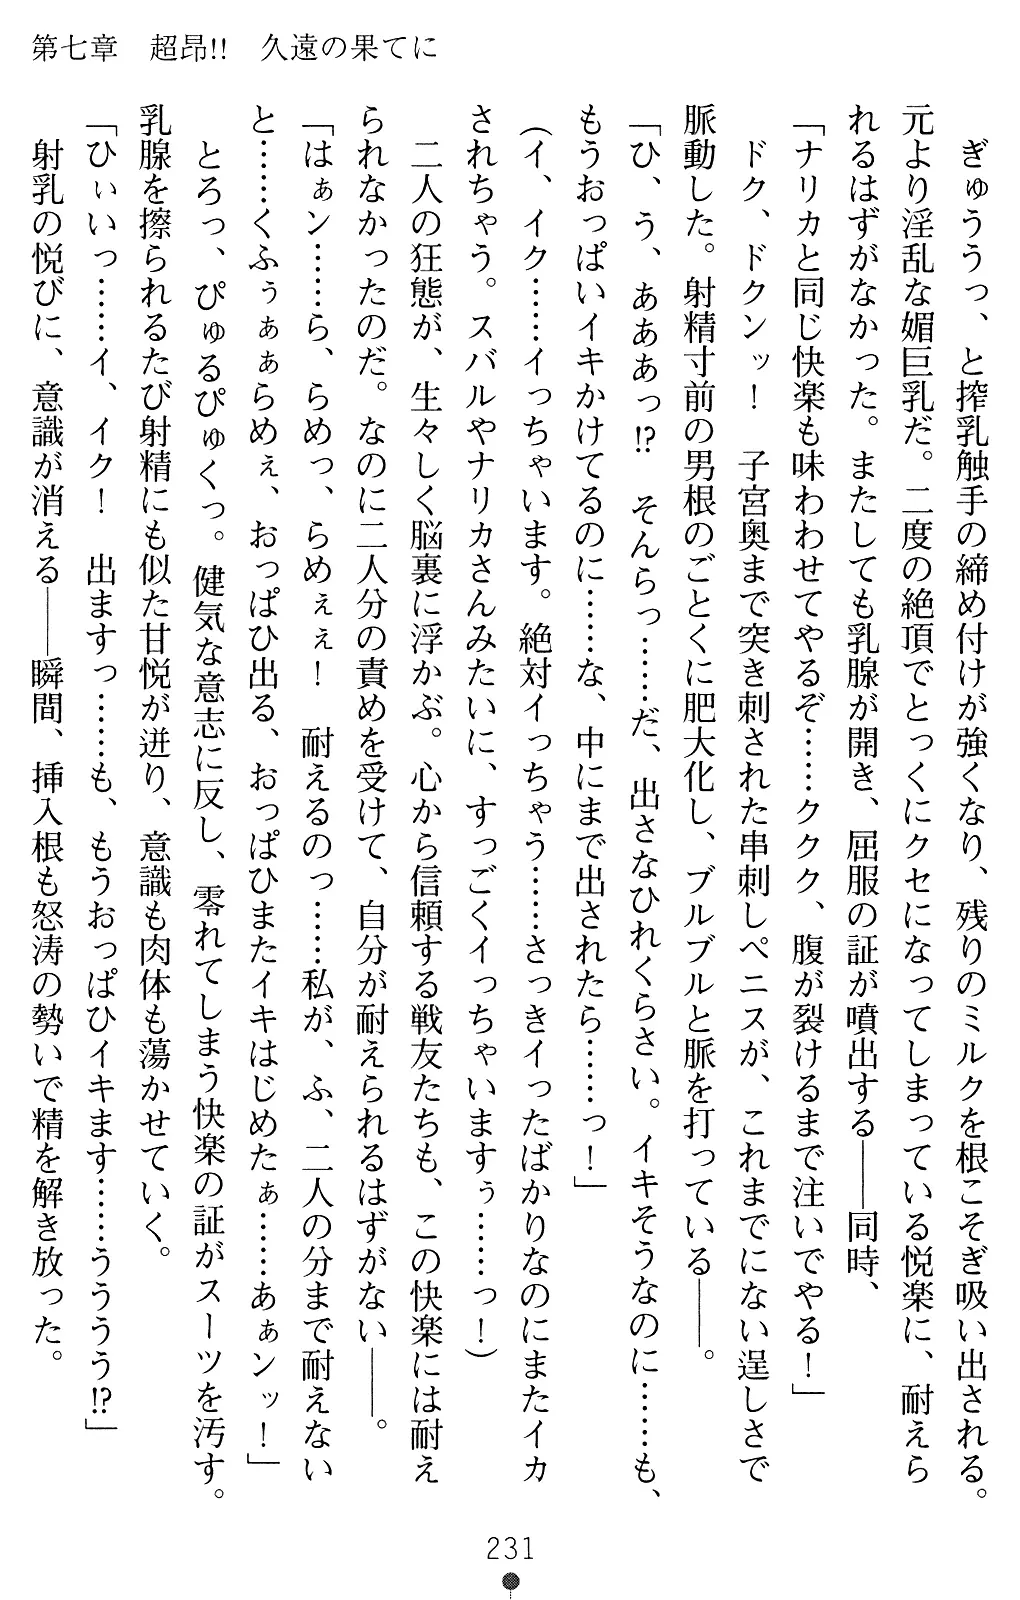 第七章　超昂!!　久遠の果てに
　ぎゅううっ、と搾乳触手の締め付けが強くなり、残りのミルクを根こそぎ吸い出される。
元より淫乱な媚巨乳だ。二度の絶頂でとっくにクセになってしまっている悦楽に、耐えら
れるはずがなかった。またしても乳腺が開き、屈服の証が噴出する――同時、
「ナリカと同じ快楽も味わわせてやるぞ……ククク、腹が裂けるまで注いでやる！」
　ドク、ドクンッ！　子宮奥まで突き刺された串刺しペニスが、これまでにない逞しさで
脈動した。射精寸前の男根のごとくに肥大化し、ブルブルと脈を打っている――。
「ひ、う、あああっ!?　そんらっ……だ、出さなひれくらさい。イキそうなのに……も、
もうおっぱいイキかけてるのに……な、中にまで出されたら……っ！」
（イ、イク……イっちゃいます。絶対イっちゃう……さっきイったばかりなのにまたイカ
されちゃう。スバルやナリカさんみたいに、すっごくイっちゃいますぅ……っ！）
　二人の狂態が、生々しく脳裏に浮かぶ。心から信頼する戦友たちも、この快楽には耐え
られなかったのだ。なのに二人分の責めを受けて、自分が耐えられるはずがない――。
「はぁン……ら、らめっ、らめぇぇ！　耐えるのっ……私が、ふ、二人の分まで耐えない
と……くふぅぁぁらめぇ、おっぱひ出る、おっぱひまたイキはじめたぁ……あぁンッ！」
　とろっ、ぴゅるぴゅくっ。健気な意志に反し、零れてしまう快楽の証がスーツを汚す。
乳腺を擦られるたび射精にも似た甘悦が迸り、意識も肉体も蕩かせていく。
「ひぃいっ……イ、イク！　出ますっ……も、もうおっぱひイキます……うううう!?」
　射乳の悦びに、意識が消える――瞬間、挿入根も怒涛の勢いで精を解き放った。
231